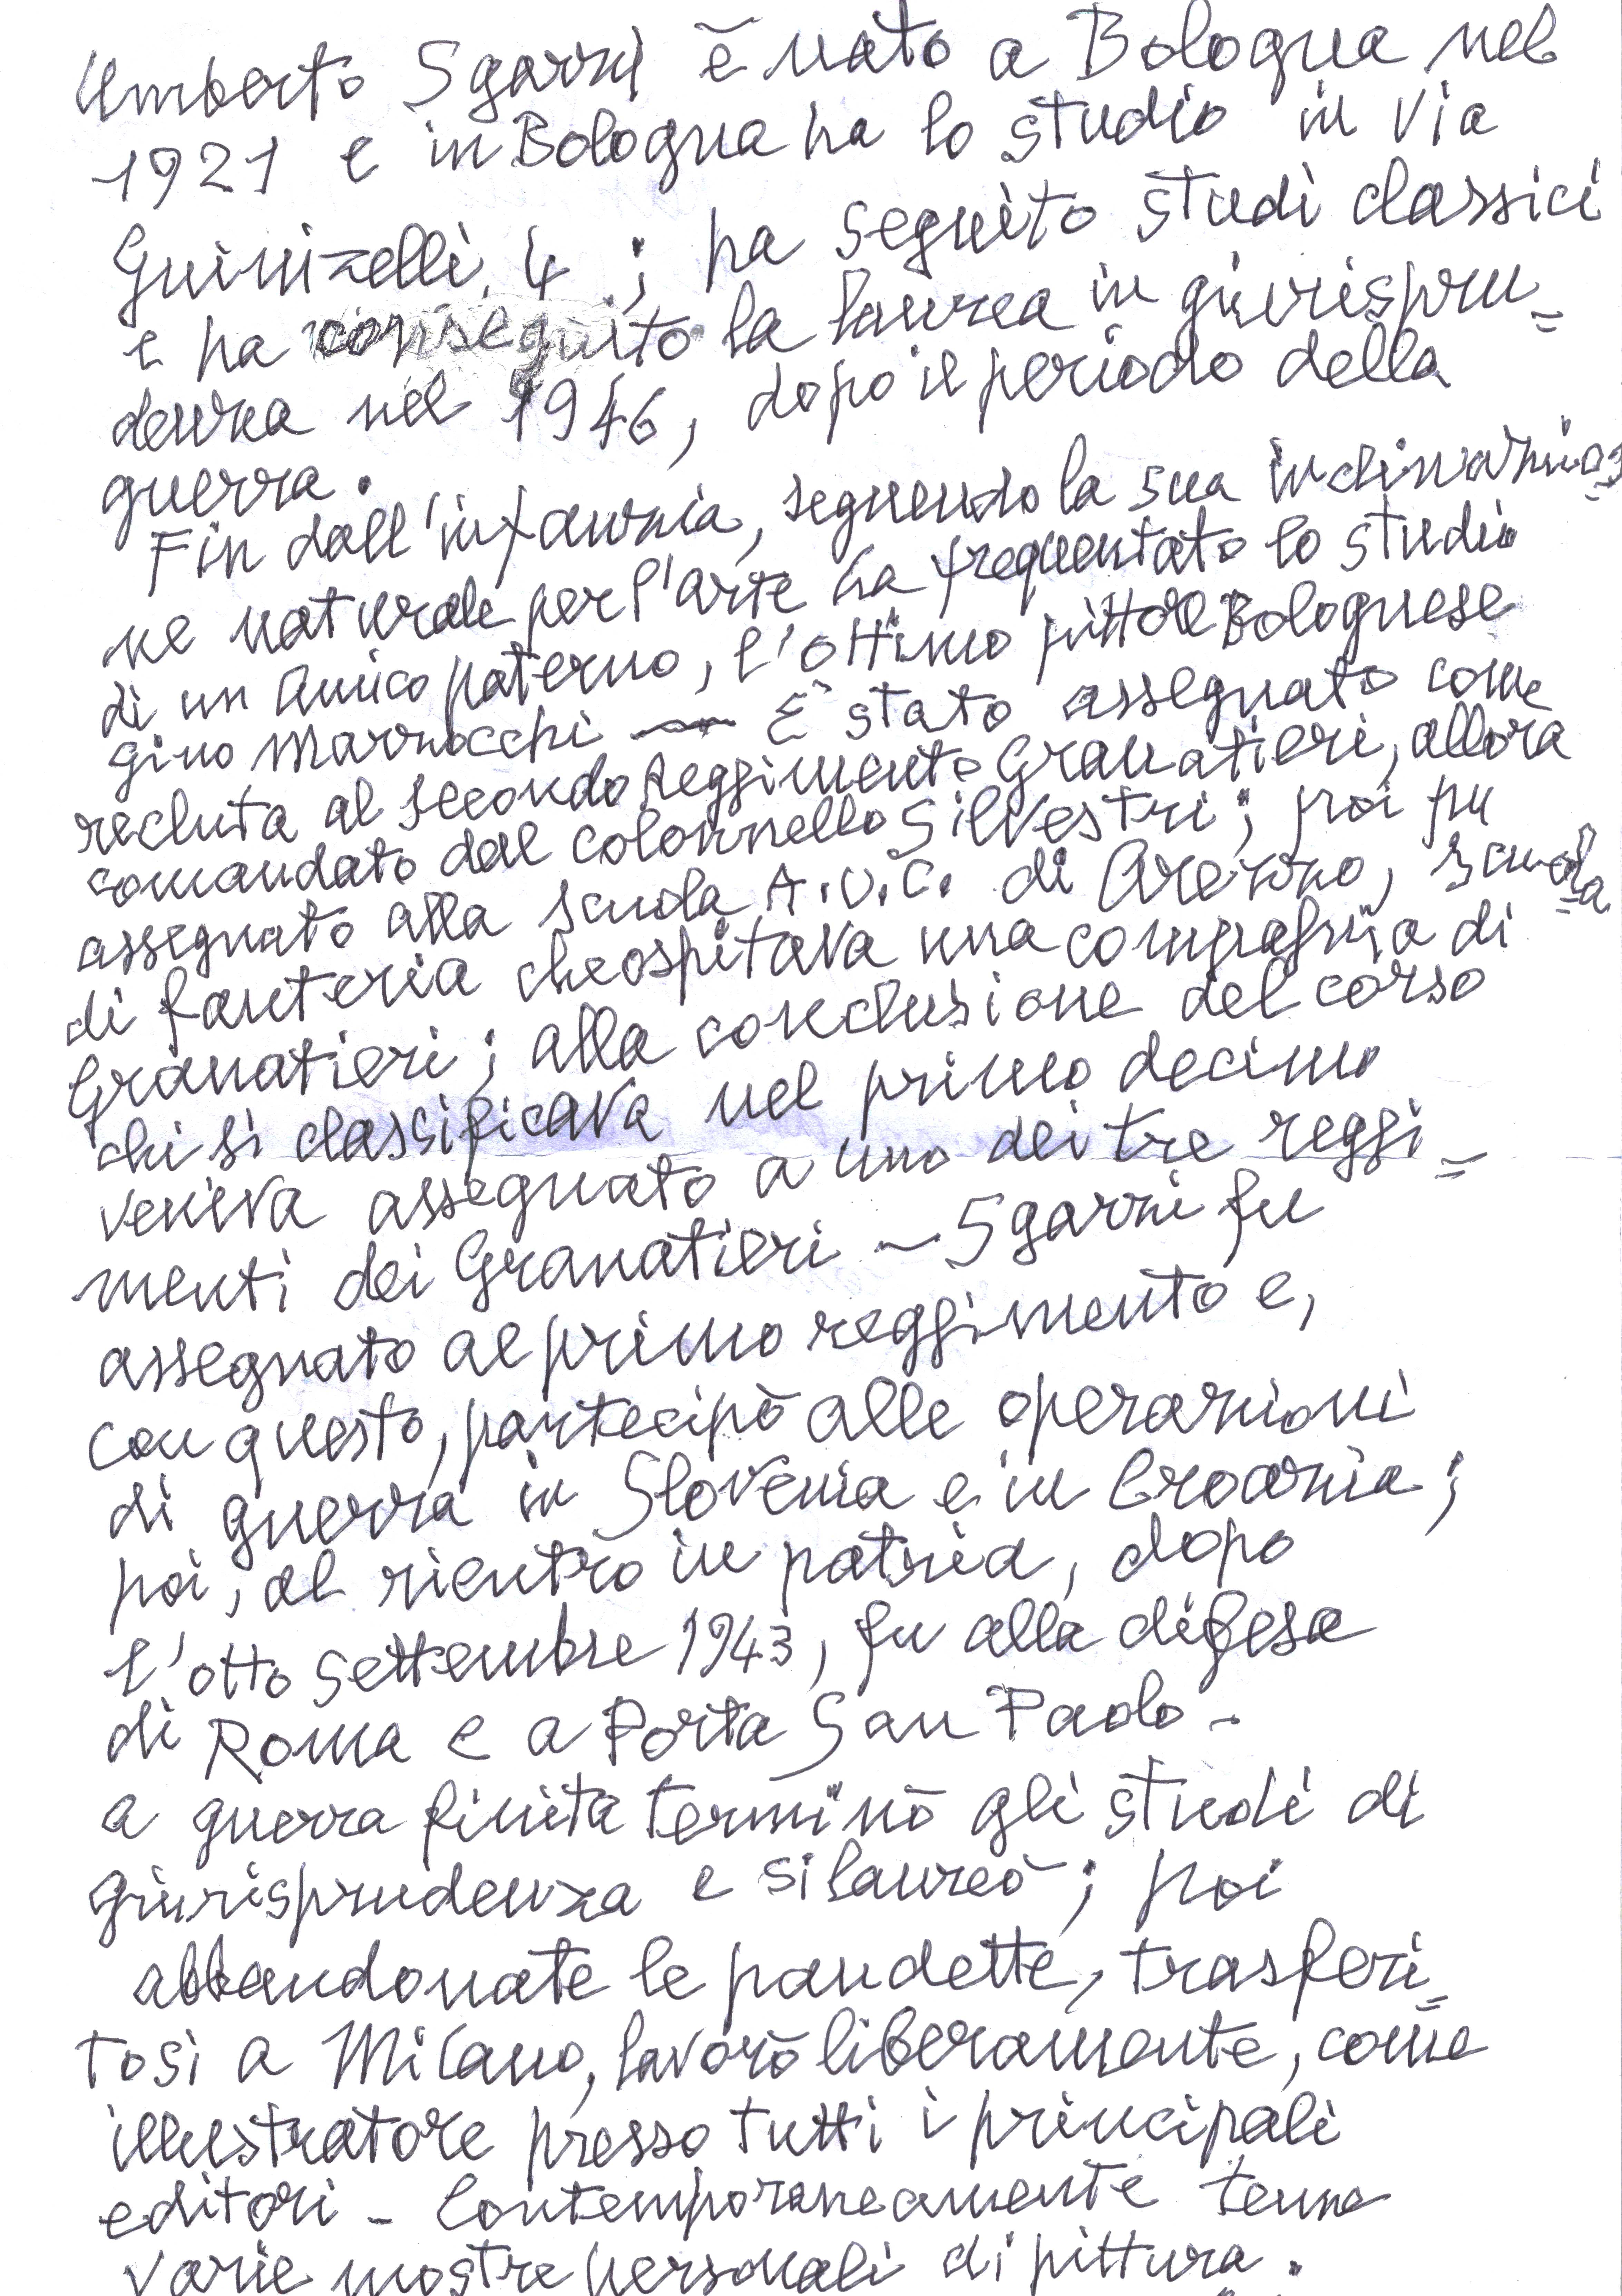 Umberto Sgarzi è nato a Bologna nel
1921 e in Bologna ha lo studio in Via
Guinizelli, 4 ; ha seguito studi classici
e ha conseguito la laurea in giurispru=
denza nel 1946, dopo il periodo della
guerra.
Fin dall'infanzia, seguendo la sua inclinazio=
ne naturale per l'arte ha frequentato lo studio
di un amico paterno, l'ottimo pittore Bolognese
Gino Marzocchi — È stato assegnato come
recluta al secondo Reggimento Granatieri, allora
comandato dal colonnello Silvestri; poi fu
assegnato alla scuola A.U.C. di Arezzo, scuola
di fanteria che ospitava una compagnia di
Granatieri; alla conclusione del corso
chi si classificava nel primo decimo
veniva assegnato a uno dei tre reggi=
menti dei Granatieri — Sgarzi fu
assegnato al primo reggimento e,
con questo, partecipò alle operazioni
di guerra in Slovenia e in Croazia;
poi, al rientro in patria, dopo
l'otto Settembre 1943, fu alla difesa
di Roma e a Porta San Paolo -
a guerra finita terminò gli studi di
giurisprudenza e si laureò; poi
abbandonate le pandette, trasferi=
tosi a Milano, lavorò liberamente, come
illustratore presso tutti i principali
editori - Contemporaneamente tenne
varie mostre personali di pittura.